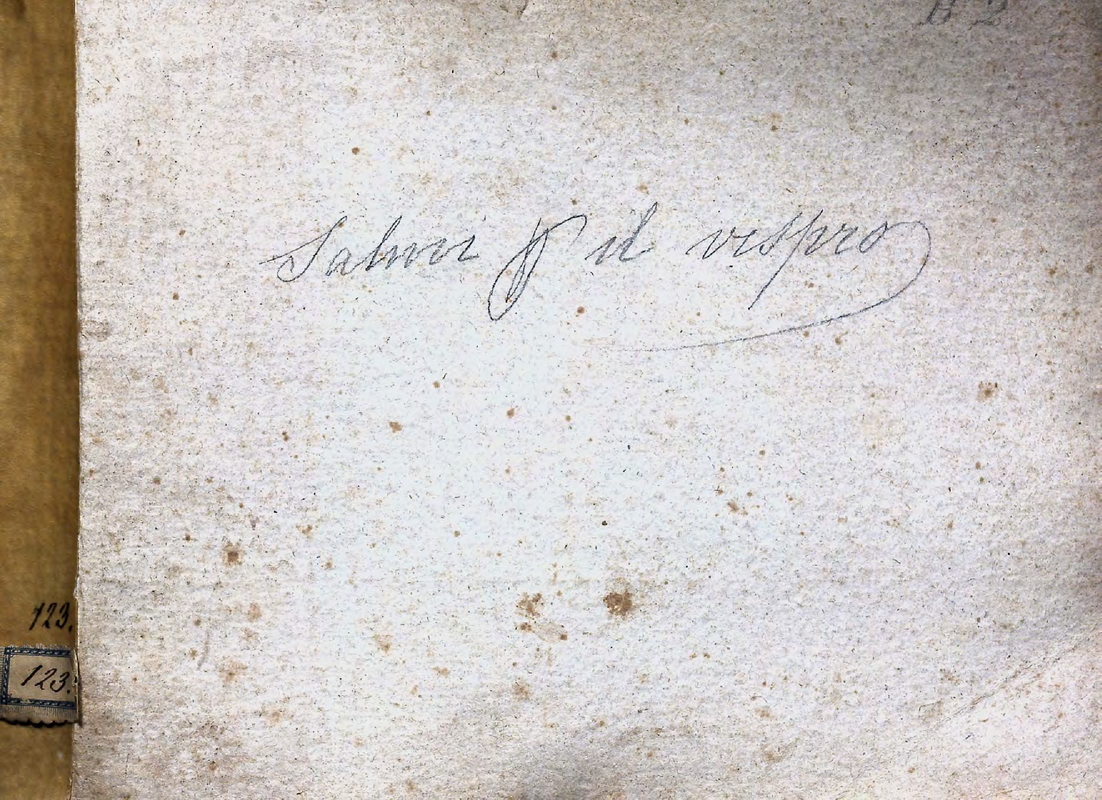 Salmi p il vespro
123.
123.